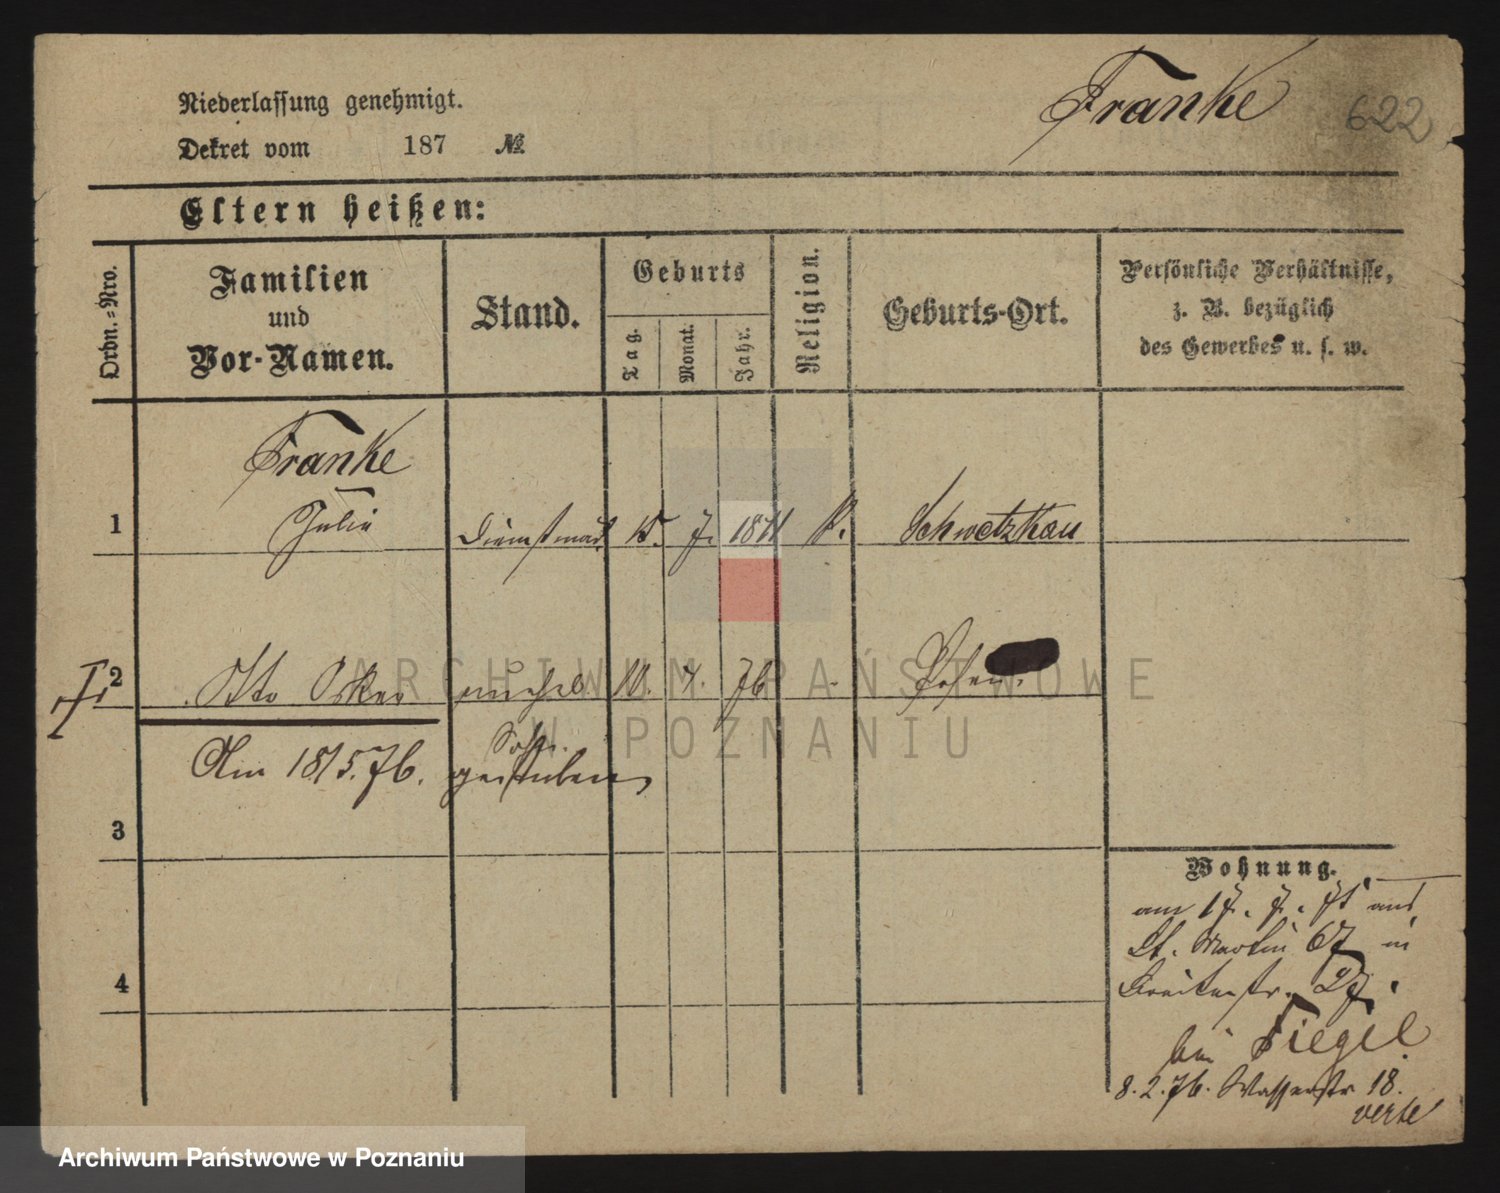 Niederlassung genehmigt.
Dekret vom 187 №
Franke
622
Eltern heißen:
Ordn.-Nro.
Familien
und
Vor-Namen.
Stand.
Geburts
Tag.
Monat.
Jahr.
Religion.
Geburts-Ort.
Persönliche Verhältnisse,
z. B. bezüglich
des Gewerbes u. s. w.
Franke
1 Julie Dienstmäd. 7. Schwetzkau
2 Otto Oskar unehel. 10. 4. 76 Posen.
Sohn.
Am 18/5.76. gestorben
3
4
Wohnung.
am 17. 7. 75 aus
St. Martin 67 in
Breitestr. 27.
bei Tiegel.
8.2.76. Wasserstr 18.
verte
ARCHIWUM PAŃSTWOWE
W POZNANIU
Archiwum Państwowe w Poznaniu